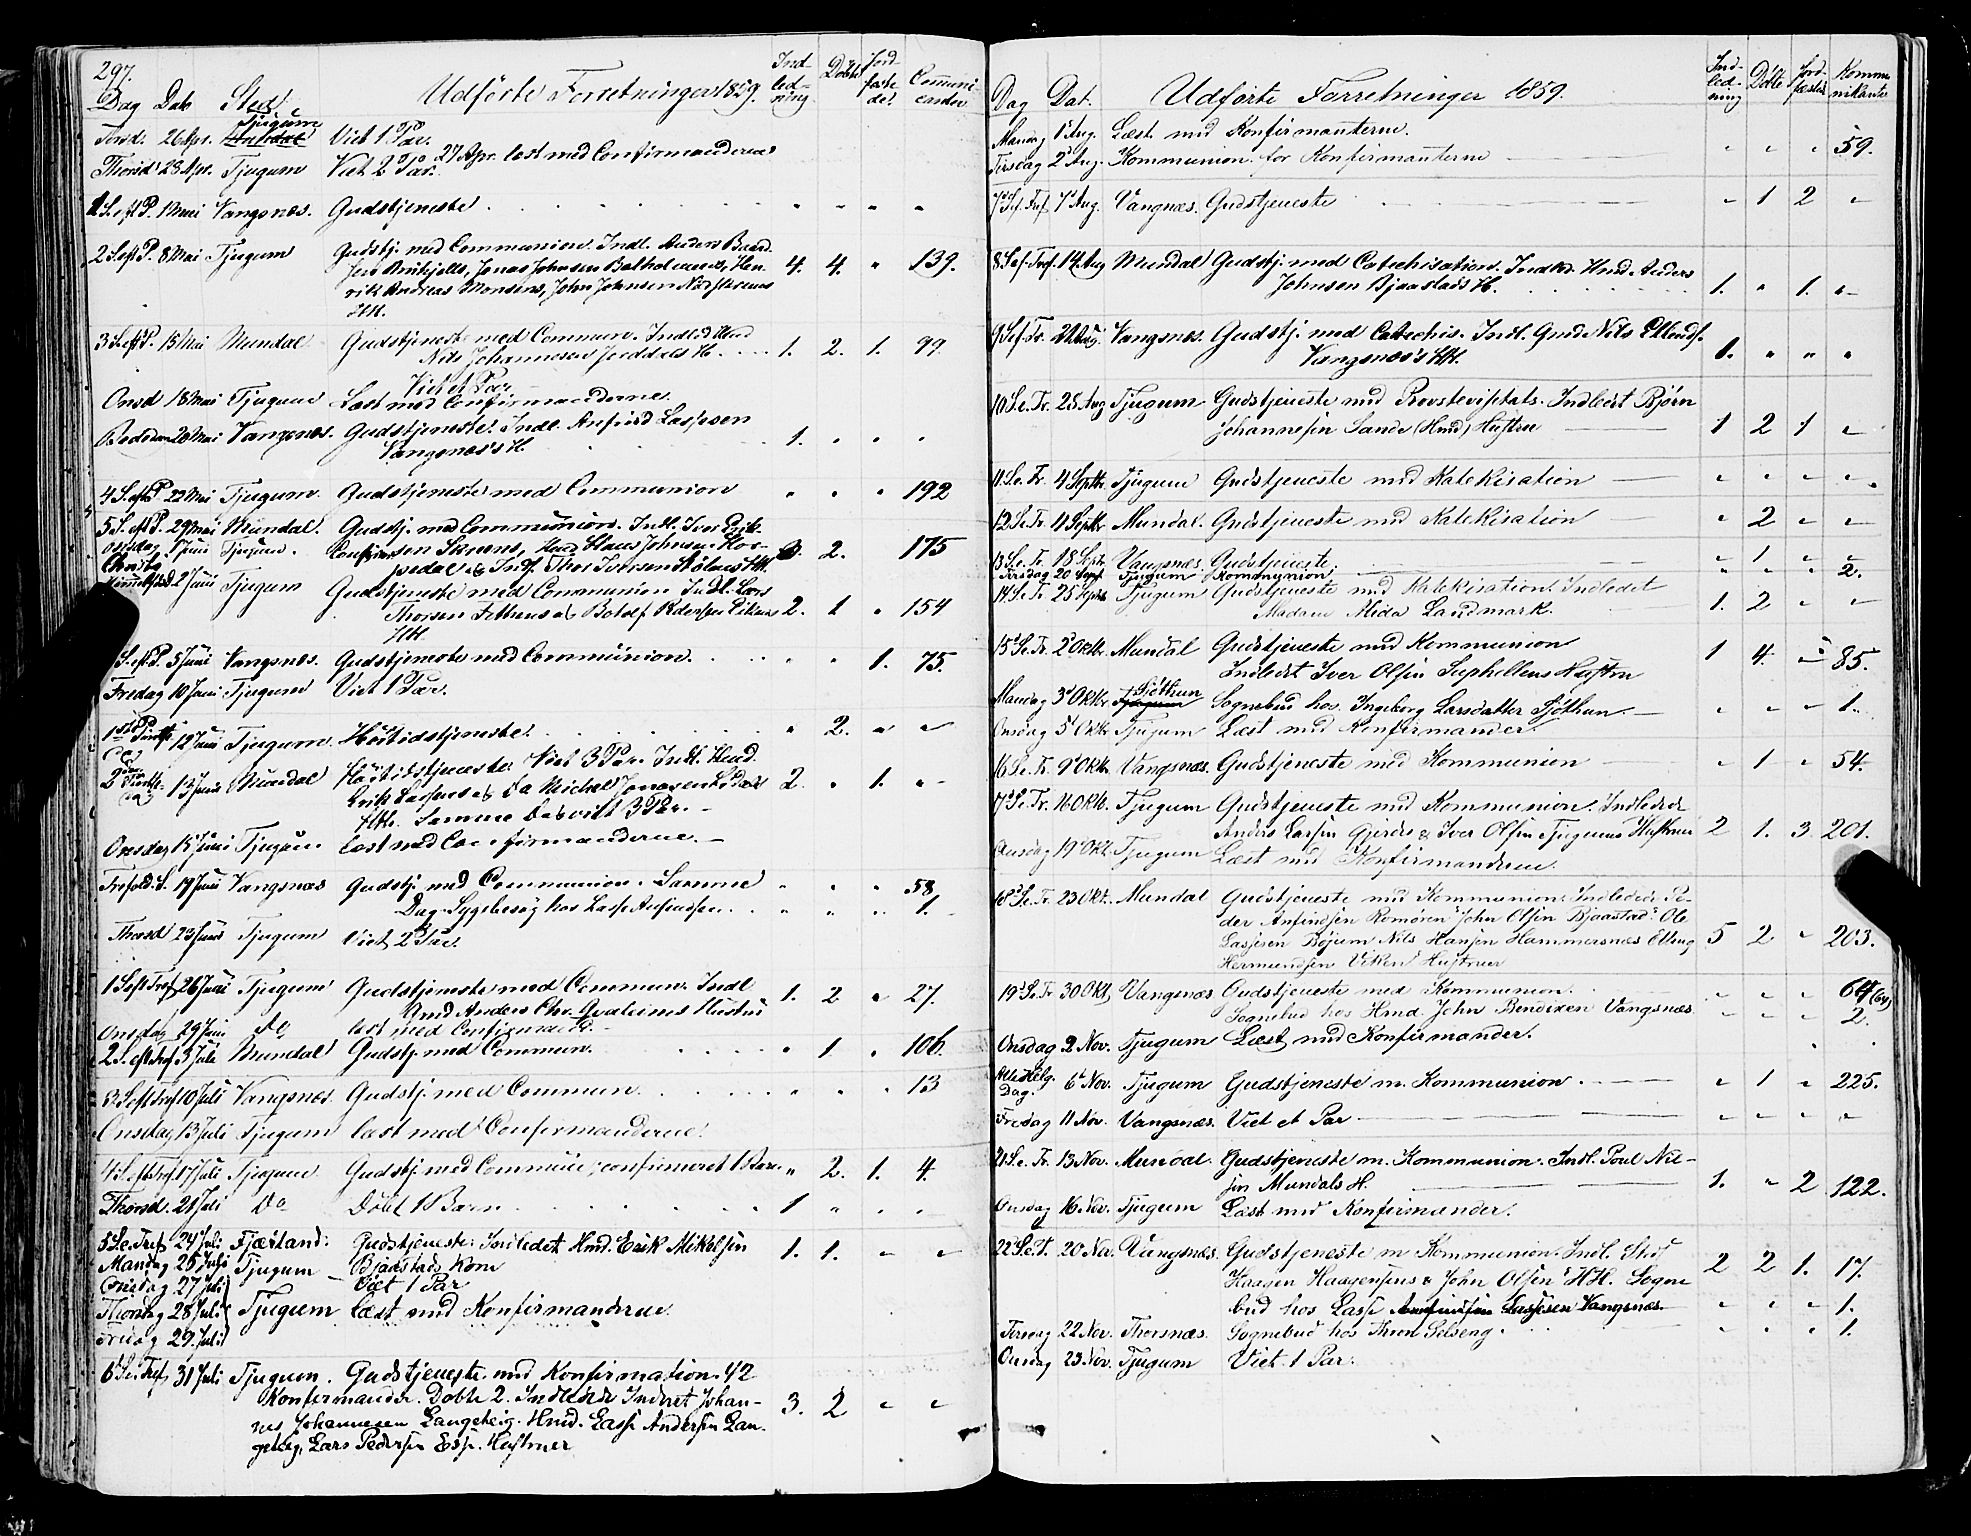 297.
Dag Dato Sted Udförte Forretninger 1859. Ind- led- ning. Döbte Jord- fæste- de. Communi- canter
Tirsd. 26 Apr. Tjugum Viet 1 Par.
27 Apr. læst med Confirmanderne
Thorsd 28 Apr. Tjugum Viet 2 Par.
1 S. eft P. 1 Mai Vangsnæs. Gudstjeneste . . . " " " "
2 S. eft P. 8 Mai Tjugum Gudstj. med Communion. Indl. Anders Baard-
Jonas Johnsen Balholmens, Hen- 4. 4. " 139.
rik Andreas Monsens, John Johnsen
HH.
3 S. eft P. 15 Mai Mundal Gudstjeneste med Commun. Indled Hmd
Nils Johannesen H. 1. 2. 1. 99.
Viet et Par
Onsd 18 Mai Tjugum Læst med Confirmanderne.
Bededag 20 Mai Vangsnæs. Gudstjeneste. Indl. Anfind Lassesen
Vangsnæs's H. 1. " " "
4 S. eft P. 22 Mai Tjugum. Gudstjeneste med Communion " " " 192
5 S. eft P. 29 Mai Mundal. Gudstj. med Communion. Indl. Iver Erik-
Onsdag 1 Juni Tjugum. sen Hmd Claus Johnsen Hos- 3. 2. 175
pedal & Indf. Thor Iversen HH.
Christi Himmelf. 2 Juni Tjugum Gudstjeneste med Communion. Indl. Lars
Thorsen & Botolf Pedersen 2. 1 " 154
HH.
S. eft P. 5 Juni Vangsnæs. Gudstjeneste med Communion. . . " " 1. 75.
Fredag 10 Juni Tjugum Viet 1 Par.
1ste Pintse- dag 12 Juni Tjugum. Höitidstjeneste. " 2. " "
2den Pintse- dag 13 Juni Mundal Höitidstjeneste. Viet 3 Par. Indl. Hmd.
Erik & Michel Jonasen 2. " 1. " "
Hth. Samme Dag viet 3 Par. –
Onsdag 15 Juni Tjugum læst med Confirmanderne. –
Trefold. S. 19 Juni Vangsnæs Gudstj. med Communion. Samme " " " 58.
Dag Sygebesøg hos Lasse Anfindsen . . " " " 1.
Thorsd 23 Juni Tjugum Viet 2 Par.
1 S. eft Tref 26 Juni Tjugum Gudstjeneste med Commun. Indl
Hmd Anders Chr. Hustru 1. 2 " 27.
Onsdag 29 Juni do læst med Confirmand. –
2 S. eft Tref 3 Juli Mundal Gudstj. med Commun. " 1 " 106.
3 S. eft Tref 10 Juli Vangsnæs. Gudstj. med Commun. " " " 13
Onsdag 13 Juli Tjugum læst med Confirmanderne.
4 S. eft Tref. 17 Juli Tjugum Gudstj. med Commun; confirmeret 1 Barn. " 2. 1. 4.
Thorsd. 21 Juli do Döbt 1 Barn 1 " " "
5 Se. Tref. 24 Juli Fjærland: Gudstjeneste: Indledet Hmd. Erik Mikelsen 1. 1. " "
Bjaastads Kone
Mandag 25 Juli Tjugum – Viet 1 Par
Onsdag 27 Juli
Thorsdag 28 Juli Tjugum læst med Konfirmanderne.
Fredag 29. Juli
6 Se. Tref. 31 Juli Tjugum. Gudstjeneste med Konfirmation. 42
Konfirmander. Döbte 2. Indledede Inderst Johan- 3. 2 " "
nes Johannesen Langeteig. Hmd. Lasse Andersen Lan-
geteig, Lars Pedersen Esse. Hustruer
Dag Dat. Udförte Forretninger 1859. Ind- led- ning Döbte Jord- fæstede Kommu- nikanter
Mandag 1 Aug. Læst med Konfirmanterne.
Tirsdag 2 Aug. Kommunion for Konfirmanterne " " " 59.
7 S. ef. Tref 7 Aug. Vangnæs. Gudstjeneste " 1 2 "
8 S. ef. Tref. 14 Aug Mundal Gudstj. med Catechisation. Indled. Hmd. Anders
Johnsen Bjaastads H. 1. " 1. "
9 S. ef. Tr. 21 Aug. Vangsnæs. Gudstj. med Catechis. Indl. Gmd. Nils Ellends.
Vangsnæs's HH. 1. " " "
10 Se. Tr. 28 Aug Tjugum Gudstjeneste med Provstevisitats. Indledt Bjørn
Johannesen Sande (Hmd) Hustru 1 2 1 "
11 Se. Tr. 4 Septbr. Tjugum Gudstjeneste med Katekisation " " " "
12 Se. Tr. 11 Septbr Mundal. Gudstjeneste med Katekisation " 2 " "
13 Se. Tr. 18 Sept. Vangsnæs. Gudstjeneste. " 1 " "
Tirsdag 20 Sept Tjugum Kommunion. " " " 2.
14 Se. Tr. 25 Septbr Tjugum Gudstjeneste med Katekisation. Indledet
Madam Alida Landmark. 1. 2 " "
15 Se. Tr. 2 Oktbr. Mundal Gudstjeneste med Kommunion 1 4. " 85.
Indledt Iver Olsen Suphellens Hustru
Mandag 3 Oktbr. Sjöthun Sognebud hos Ingeborg Larsdatter Sjöthun. " " " 1.
Onsdag 5 Oktbr Tjugum Læst med Konfirmander.
16 Se. Tr. 9 Oktbr. Vangsnæs. Gudstjeneste med Kommunion " 1 " 54.
17 Se. Tr. 16 Oktbr. Tjugum Gudstjeneste med Kommunion. Indledede
Anders Larsen Gjerde & Iver Olsen Tjugums Hustruer 2 1. 3. 201.
Onsdag 19 Okt. Tjugum Læst med Konfirmanderne.
18 Se. Tr. 23 Okt. Mundal Gudstjeneste med Kommunion. Indledede Pe-
der Anfindsen Romören John Olsen Bjaastad. Ole
Lassesen Böjum Nils Hansen Hammersnæs Elling 5 2 " 203.
Hermundsen Viken Hustruer
19 Se. Tr 30 Okt. Vangsnæs. Gudstjeneste med Kommunion. " " " 64 (64)
Sognebud hos Hmd. John Bendixen Vangsnæs " " " 2.
Onsdag 2 Nov. Tjugum Læst med Konfirmander.
Alle Helg. Dag. 6 Nov. Tjugum Gudstjeneste m. Kommunion. " 1 " 225.
Fredag 11 Nov. Vangsnæs. Viet et Par " " " "
21 Se. Tr. 13 Nov. Mundal. Gudstjeneste m. Kommunion. Indl. Poul Niel-
sen Mundals H. 1. " 2 122.
Onsdag 16. Nov. Tjugum Læst med Konfirmander.
22 Se. T. 20 Nov. Vangsnæs. Gudstjeneste m Kommunion. Indl.
Haagen Haagensens & John Olsen HH. Sogne 2 2 1. 17.
bud hos Lasse Lassesen Vangsnæs " " " 1.
Tirsdag 22 Nov. Thorsnæs. Sognebud hos Selseng. " " " 1.
Onsdag 23 Nov. Tjugum Viet 1 Par.